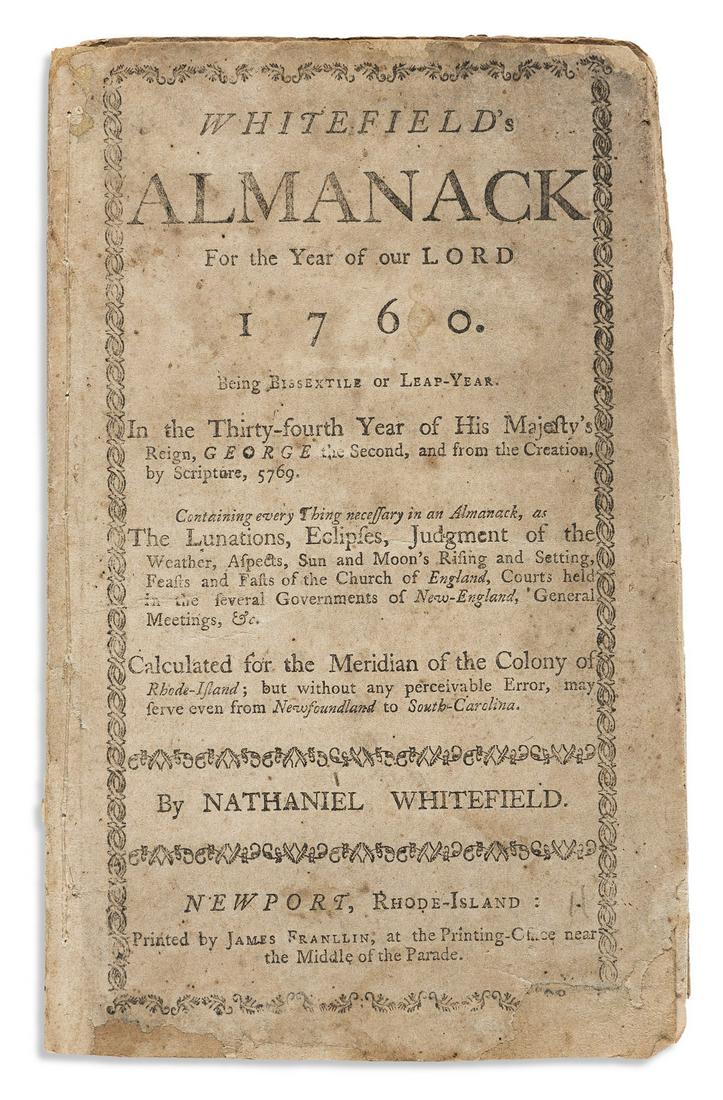 WHITEFIELD's
ALMANACK
For the Year of our LORD
1760.
Being BISSEXTILE or LEAP-YEAR.
In the Thirty-fourth Year of His Majeſty's
Reign, GEORGE the Second, and from the Creation,
by Scripture, 5769.
Containing every Thing neceſſary in an Almanack, as
The Lunations, Eclipſes, Judgment of the
Weather, Aſpects, Sun and Moon's Riſing and Setting,
Feaſts and Faſts of the Church of England, Courts held
in the ſeveral Governments of New-England, General
Meetings, &c.
Calculated for the Meridian of the Colony of
Rhode-Iſland; but without any perceivable Error, may
ſerve even from Newfoundland to South-Carolina.
By NATHANIEL WHITEFIELD.
NEWPORT, RHODE-ISLAND :
Printed by JAMES FRANLLIN, at the Printing-Office near
the Middle of the Parade.